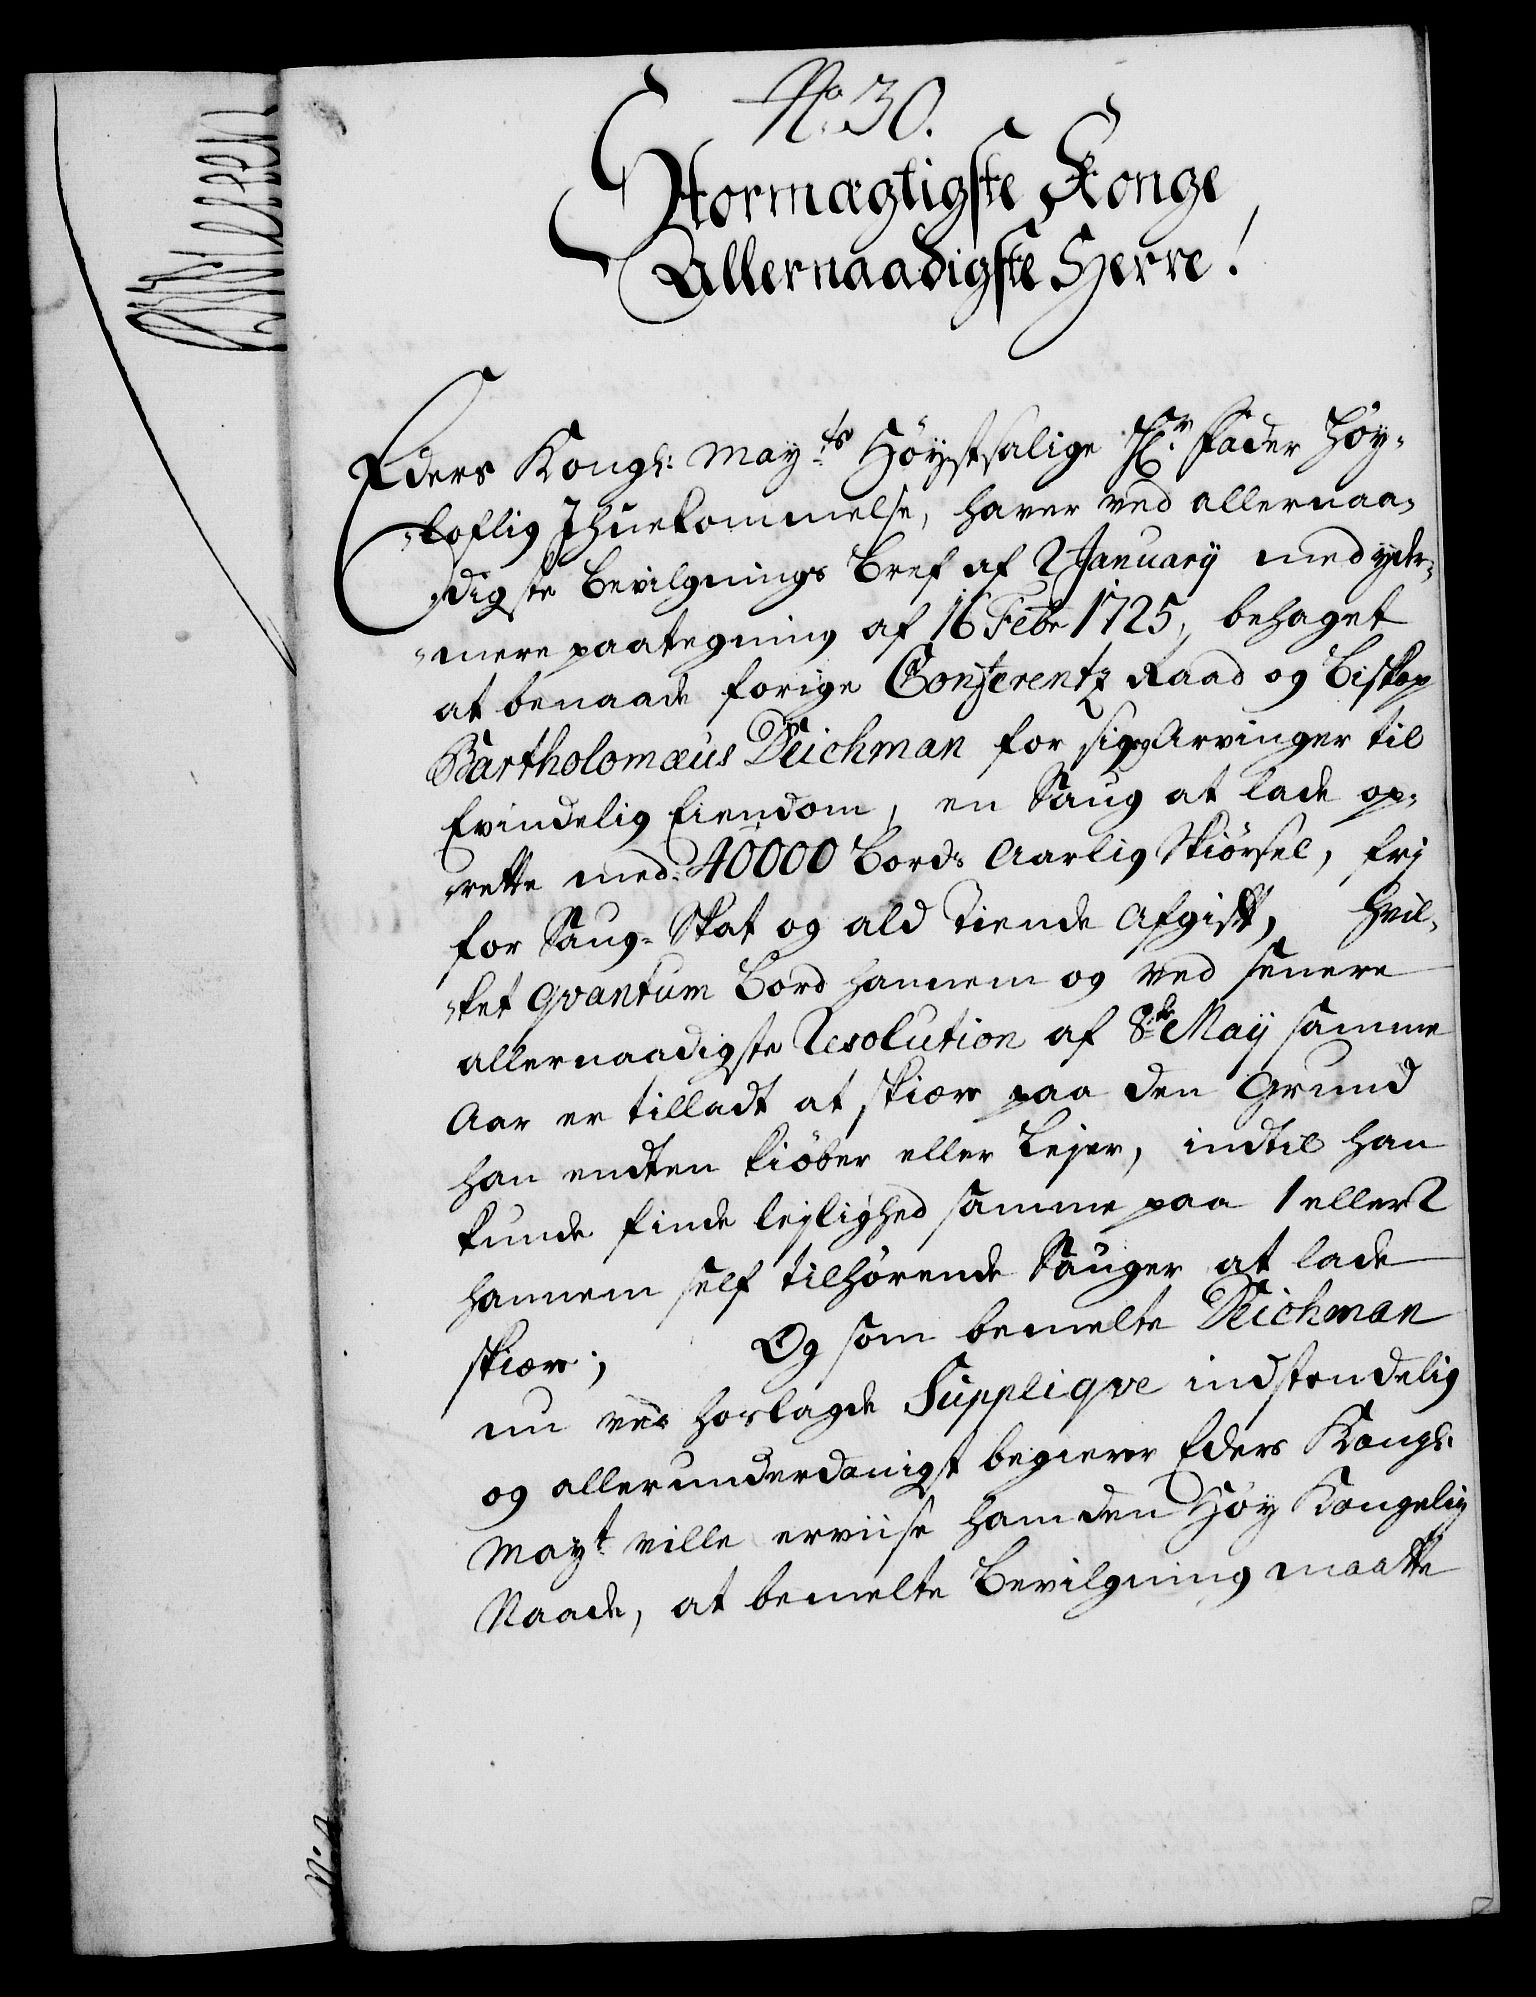 No. 30.
Stormægtigste Konge
Allernaadigste Herre!
Eders Kongl: May:ts Høystsalige Hr. Fader Høy-
-loflig Ihuekommelse, haver ved allernaa-
-digste Bevilgnings Bref af 2 January med yder-
-mere paategning af 16 Febr 1725, behaget
at benaade forige Conferentz Raad og Biskop
Bartholomæus Deichman for sig og Arvinger til
Evindelig Eiendom, en Saug at lade op-
-rette med 40000 Bords Aarlig Skiørsel, frj
for Saug-Skat og ald Tiende Afgift, hvil-
-ket qvantum Bord hannem og ved senere
allernaadigste Resolution af 8de Maij samme
Aar er tilladt at skiære paa den Grund
han endten kiøber eller Lejer, indtil han
kunde finde lejlighed samme paa 1 eller 2
hannem self tilhørende Sauger at lade
skiære; Og som bemelte Deichman
nu ved hoslagde Supplique indstendelig
og allerunderdanigst begierer Eders Kongl:
Mayt ville erviise ham den Høy Kongelig
Naade, at bemelte Bevilgning maatte
No